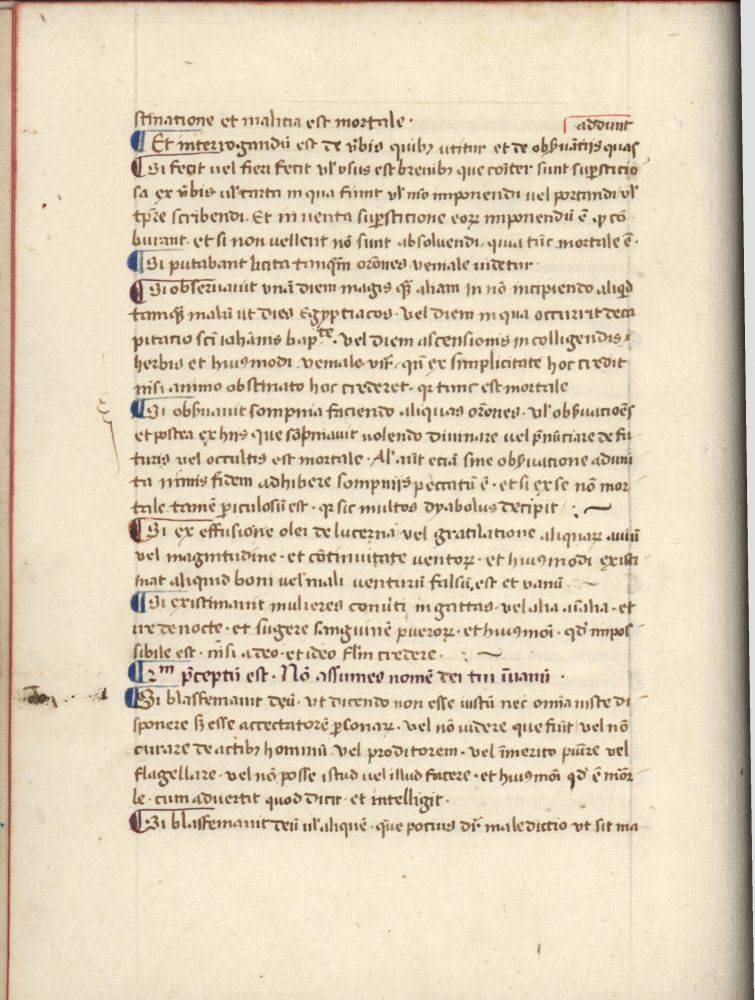 stinatione et malicia est mortale · addunt
¶ Et interrogandū est de v̄bis quibꝫ utitur et de obẜuātijs quas
¶ Si fecit uel fieri fecit ul̄ usus est breuibꝫ que cōiter sunt suꝑsticio
sa ex v̄bis ul̄ carta in qua fiunt ul̄ mō imponendi uel portandi ul̄
tp̄re scribendi · Et in uenta suꝑsticione eoꝝ imponendū ē ꝙ cō
burant · et si non vellent nō sunt absoluendi · quia tūc mortale ē ·
¶ Si putabant licita tanqm̄ orōnes veniale uidetur
¶ Si obseruauit vnā diem magis qꝫ aliam in nō incipiendo aliqd̄
tamqꝫ malū ut dies Egyptiacos · Vel diem in qua occurrit deca
pitatio sc̄i iohānis bapᵗᵉ · vel diem ascensionis in colligendis
herbis et huiusmodi veniale vr̄ · qn̄ ex simplicitate hoc credit
nisi animo obstinato hoc crederet · qꝛ tunc est mortale
¶ Si obẜuauit sompnia faciendo aliquas orōnes · ul̄ obẜuaciōes
et postea ex hijs que sōpniauit uolendo diuinare uel p̄nūciare de fu
turis vel occultis est mortale · Al' aūt eciā sine obẜuatione aduni
ta nimis fidem adhibere sompnijs peccatū ē · et si ex se nō mor
tale tamē ꝑiculosū est · qꝛ sic multos dyabolus decipit
¶ Si ex effusione olei de lucerna vel gratilatione aliquaꝝ auiū
vel magnitudine · et cōtinuitate uentoꝝ · et huiusmodi existi
mat aliquid boni uel mali venturū falsū est et vanū
¶ Si existimauit mulieres conuerti in gattas · vel alia aīalia · et
ire de nocte · et sugere sanguinē pueroꝝ · et huiꝰmōi · qd̄ impos
sibile est · nisi a deo · et ideo fl̄m credere ·
¶ 2ᵐ p̄ceptū est · Nō assumes nomē dei tui ī uanū ·
¶ Si blasfemauit deū · vt dicendo non esse iustū nec omīa iuste di
sponere sꝫ esse accectatorē ꝑsonaꝝ · vel nō uidere que fiūt vel nō
curare de actibꝫ hominū vel proditorem · vel īmerito puīre vel
flagellare · vel nō posse istud uel illud facere · et huiꝰmōi qd̄ ē mōr
le · cum aduertit quod dicit · et intelligit ·
¶ Si blasfemauit deū ul̄ aliquē · que potius dr̄ maledictio vt sit ma